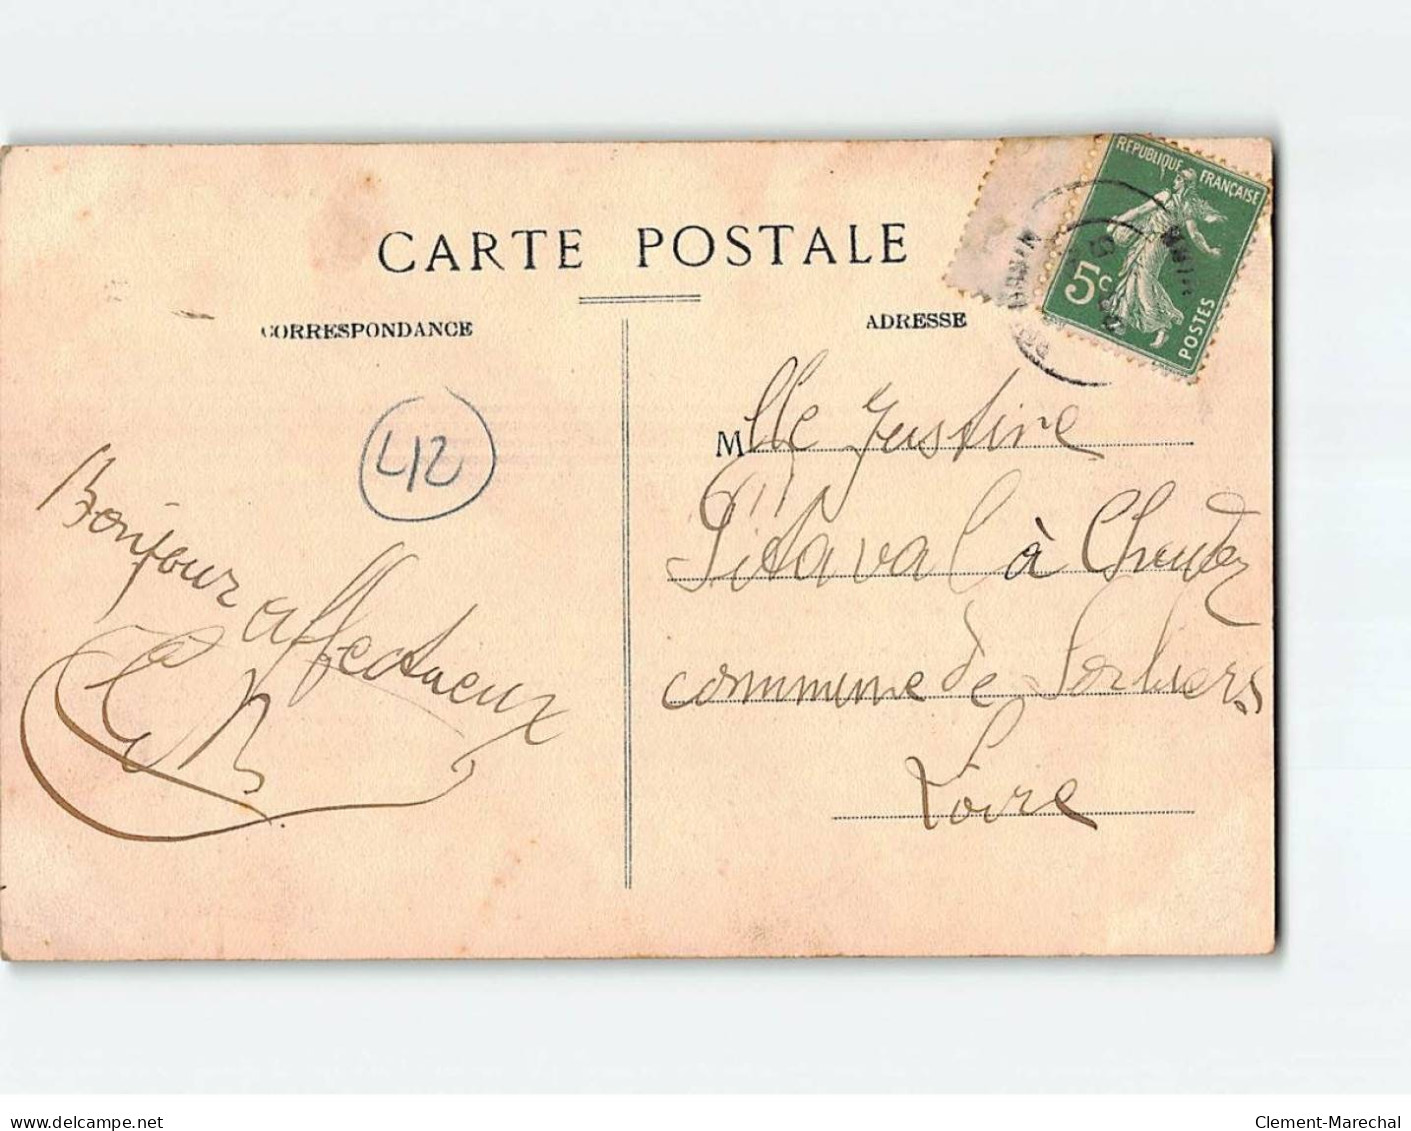 CARTE POSTALE
CORRESPONDANCE
ADRESSE
REPUBLIQUE FRANÇAISE
5c
POSTES
42
Bonjour affectueux
Mlle Justine
Pitaval à
commune de Sorbiers
Loire
delcampe.net
Clement-Marechal